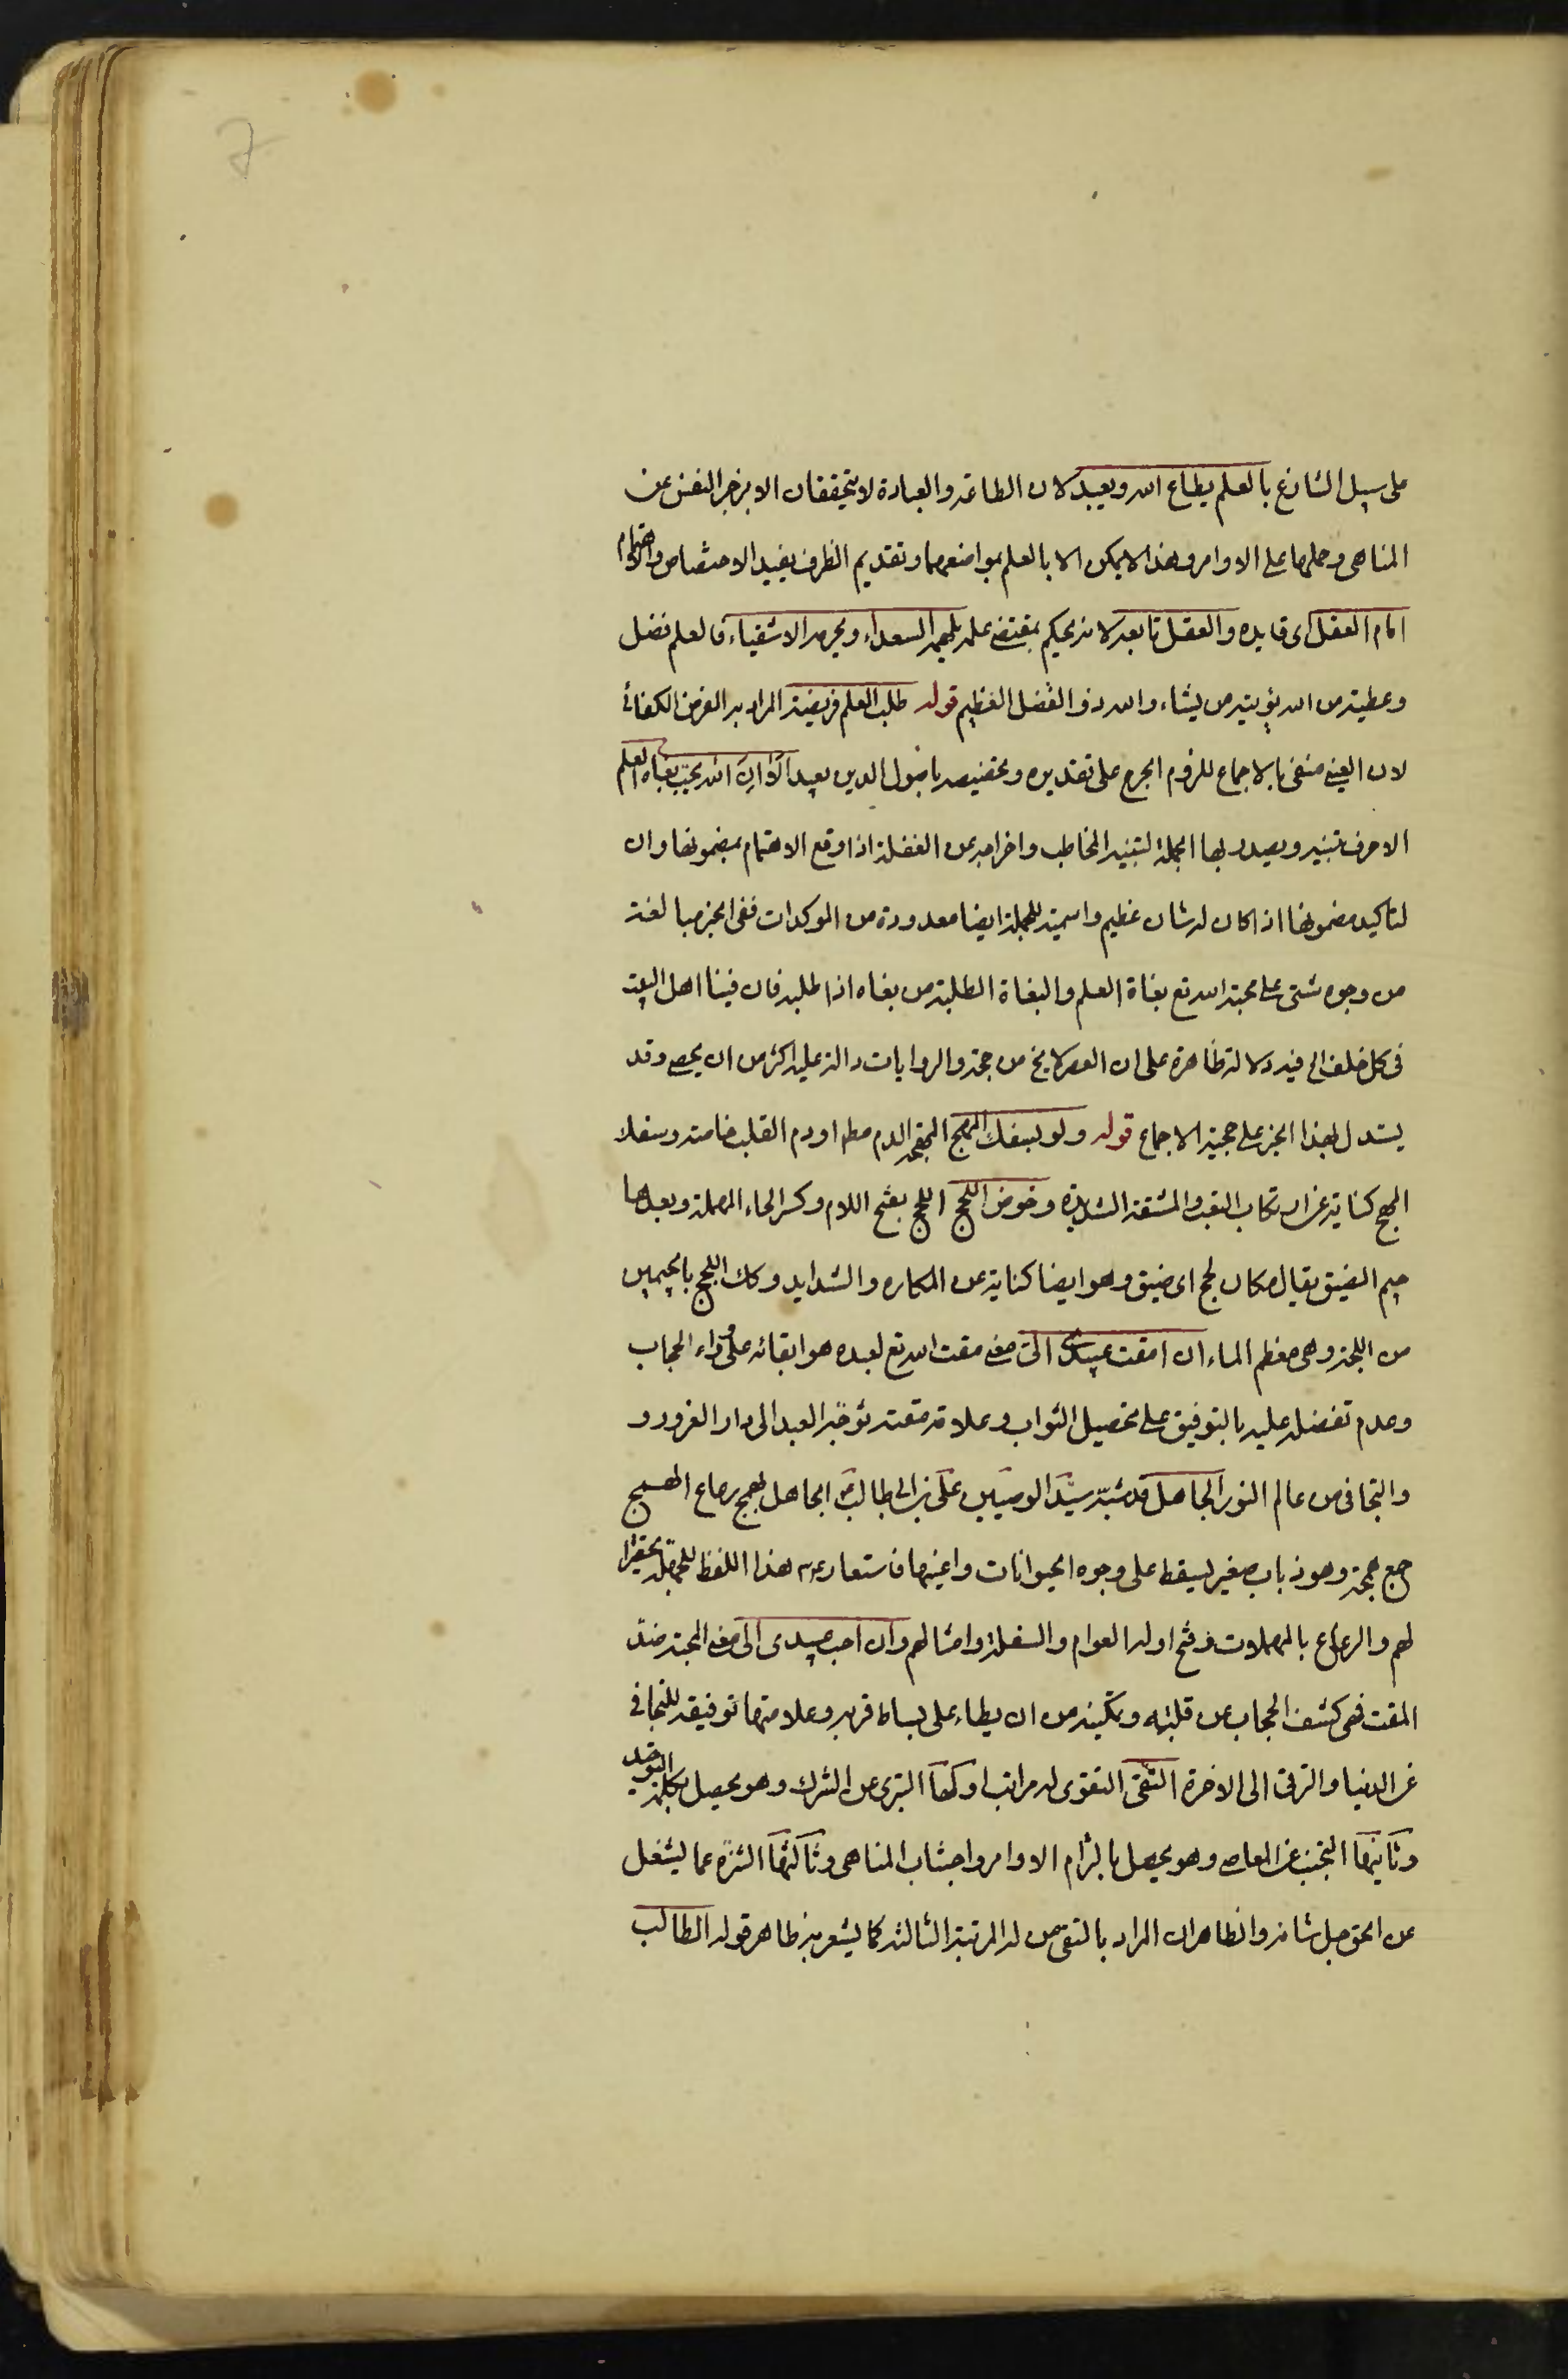 على سبيل التنازع بالعلم يطاع الله ويعبد لان الطاعة والعبادة لا يتحققان الا بزجر النفس عن
المناهى وحملها على الاوامر وهذا لا يمكن الا بالعلم بمواضعهما وتقديم الظرف يفيد الاختصاص والاهتمام
امام العقل اى قايده والعقل تابعه لانه يحكم بمقتضى علمه يلهمه السعداء ويحرمه الاشقياء فالعلم فضل
وعطية من الله يؤتيه من يشاء والله ذو الفضل العظيم قوله طلب العلم فريضة المراد به الفرض الكفائى
لان العينى منفى بالاجماع للزوم الحرج على تقديره وتخصيصه باصول الدين بعيد الا ان الله يحب بغاة العلم
الا حرف تنبيه ويصدر بها الجملة لتنبيه المخاطب واخراجه عن الغفلة اذا وقع الاهتمام بمضمونها وان
لتاكيد مضمونها اذا كان له شان عظيم واسمية الجملة ايضا معدودة من الموكدات ففى الخبر مبالغة
من وجوه شتى على محبة الله تع بغاة العلم والبغاة الطلبة من بغاه اذا طلبه فان فينا اهل البيت
فى كل خلف الى فيه دلالة ظاهرة على ان العصر لا يخ من حجة والروايات دالة عليه اكثر من ان يحصى وقد
يستدل بهذا الخبر على حجية الاجماع قوله ولو بسفك المهج المهجة الدم مطم او دم القلب خاصة وسفك
المهج كناية عن ارتكاب التعب والمشقة الشديدة وخوض اللجج اللحج بفتح اللام وكسر الحاء المهملة وبعدها
جيم الضيق يقال مكان لحج اى ضيق وهو ايضا كناية عن المكاره والشدايد وكك اللجج بالجيمين
من اللجة وهى معظم الماء ان امقت عبيدى الى معنى مقت الله تع لعبده هو ابقائه على وراء الحجاب
وعدم تفضله عليه بالتوفيق على تحصيل الثواب وعلامة مقته توجه العبد الى دار الغرور و
والتجافى من عالم النور الجاهل قد شبه سيد الوصيين على بن ابى طالب ع الجاهل بهمج رعاع الهمج
جمع همجة وهو ذباب صغير يسقط على وجوه الحيوانات واعينها فاستعار ع م هذا اللفظ للجهلة تحقيرا
لهم والرعاع بالمهملات وفتح اوله العوام والسفلة وامثالهم وان احب عبيدى الى معنى المحبة ضد
المقت فهى كشف الحجاب عن قلبه وتمكينه من ان يطاء على بساط قربه وعلامتها توفيقه للتجافى
عن الدنيا والترقى الى الاخرة التقى التقوى له مراتب اولها التبرى عن الشرك وهو يحصل بكلمة التوحيد
وثانيها التجنب عن المعاصى وهو يحصل بالتزام الاوامر واجتناب المناهى وثالثها التنزه عما يشغل
عن الحق جل شانه والظاهر ان المراد بالتقى من له المرتبة الثالثة كما يشعر به ظاهر قوله الطالب